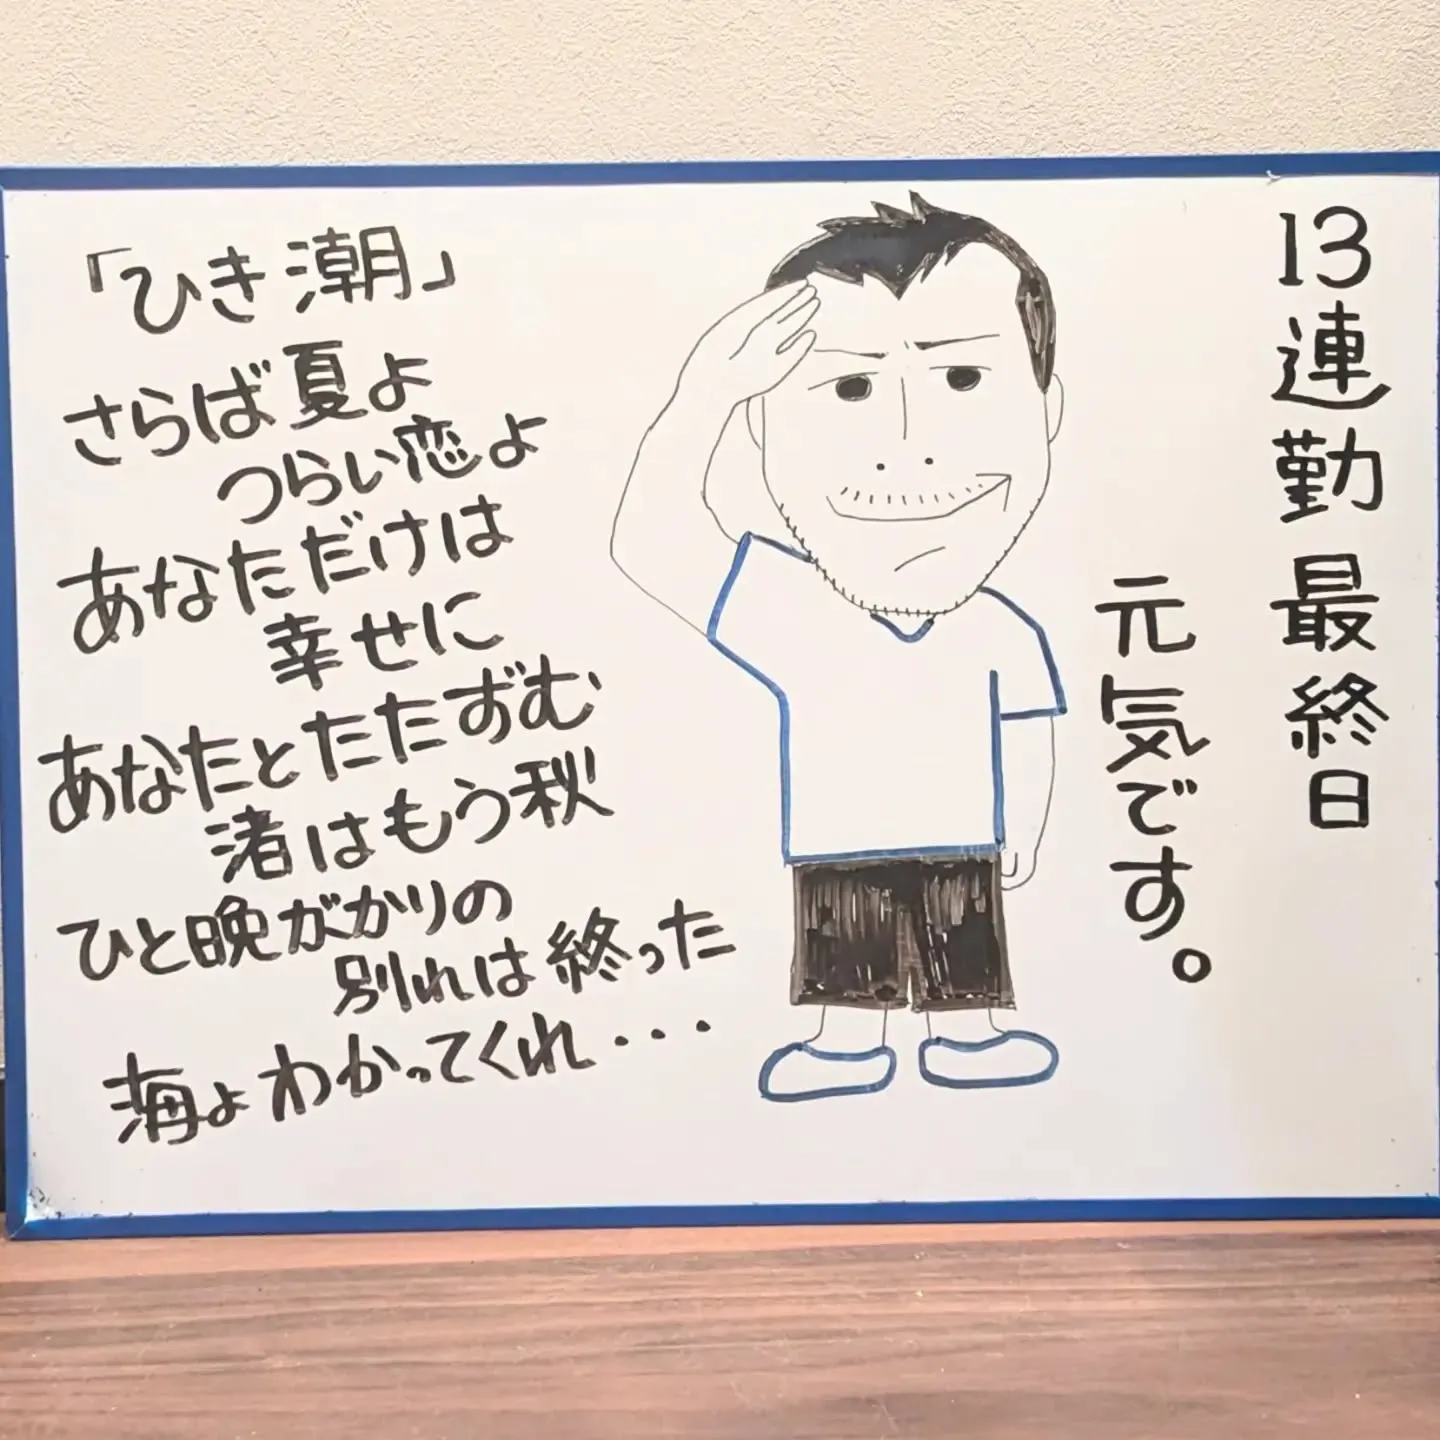 13連勤最終日
元気です。
「ひき潮」
さらば夏よ
つらい恋よ
あなただけは
幸せに
あなたとたたずむ
渚はもう秋
ひと晩がかりの
別れは終った
海よわかってくれ・・・